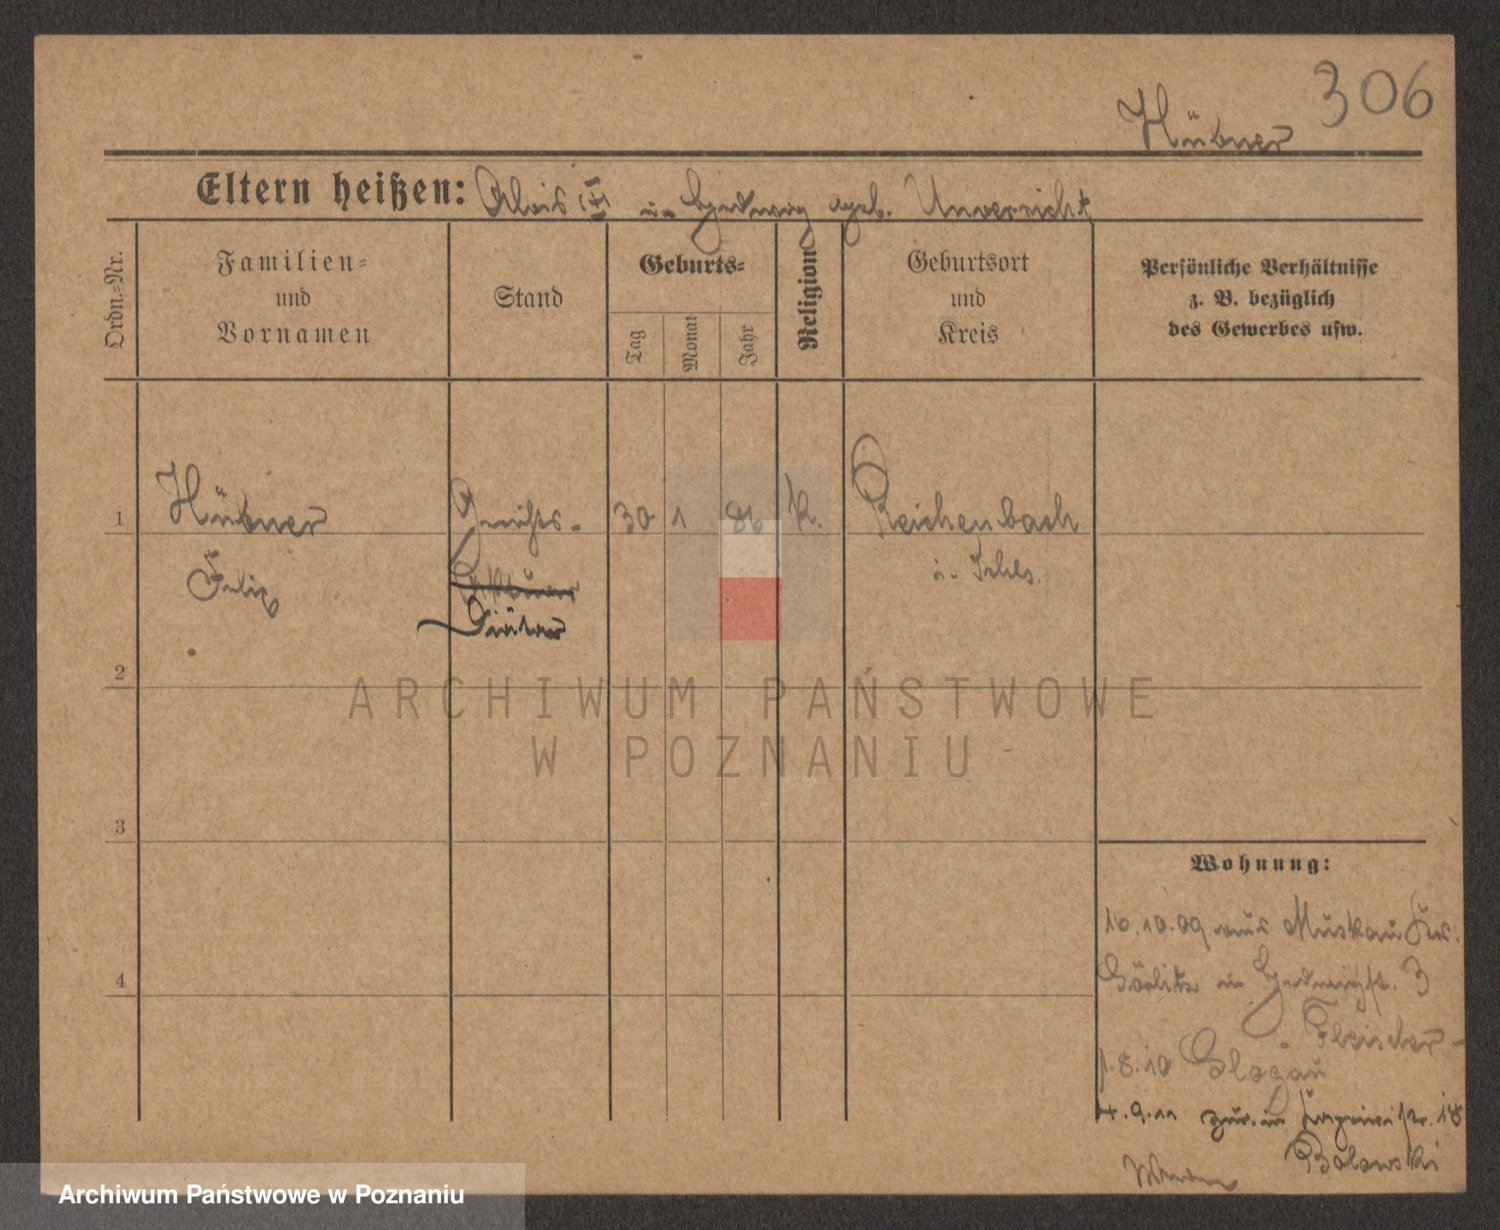 306
Hübner
Eltern heißen: Alois u. Hedwig geb. Unverricht
Ordn.-Nr.
Familien-
und
Vornamen
Stand
Geburts-
Tag
Monat
Jahr
Religion
Geburtsort
und
Kreis
Persönliche Verhältnisse
z. B. bezüglich
des Gewerbes usw.
1
Hübner
Felix
Gerichts-
Aktuar
Diätar
30
1
86
K.
Reichenbach
i. Schls.
2
3
4
ARCHIWUM PAŃSTWOWE
W POZNANIU
Wohnung:
16.10.09 aus Muskau Krs.
Görlitz in Hedwigst. 3
Fleischer
1.8.10 Glogau
4.9.11 zur. in 18
Bolewski
Archiwum Państwowe w Poznaniu